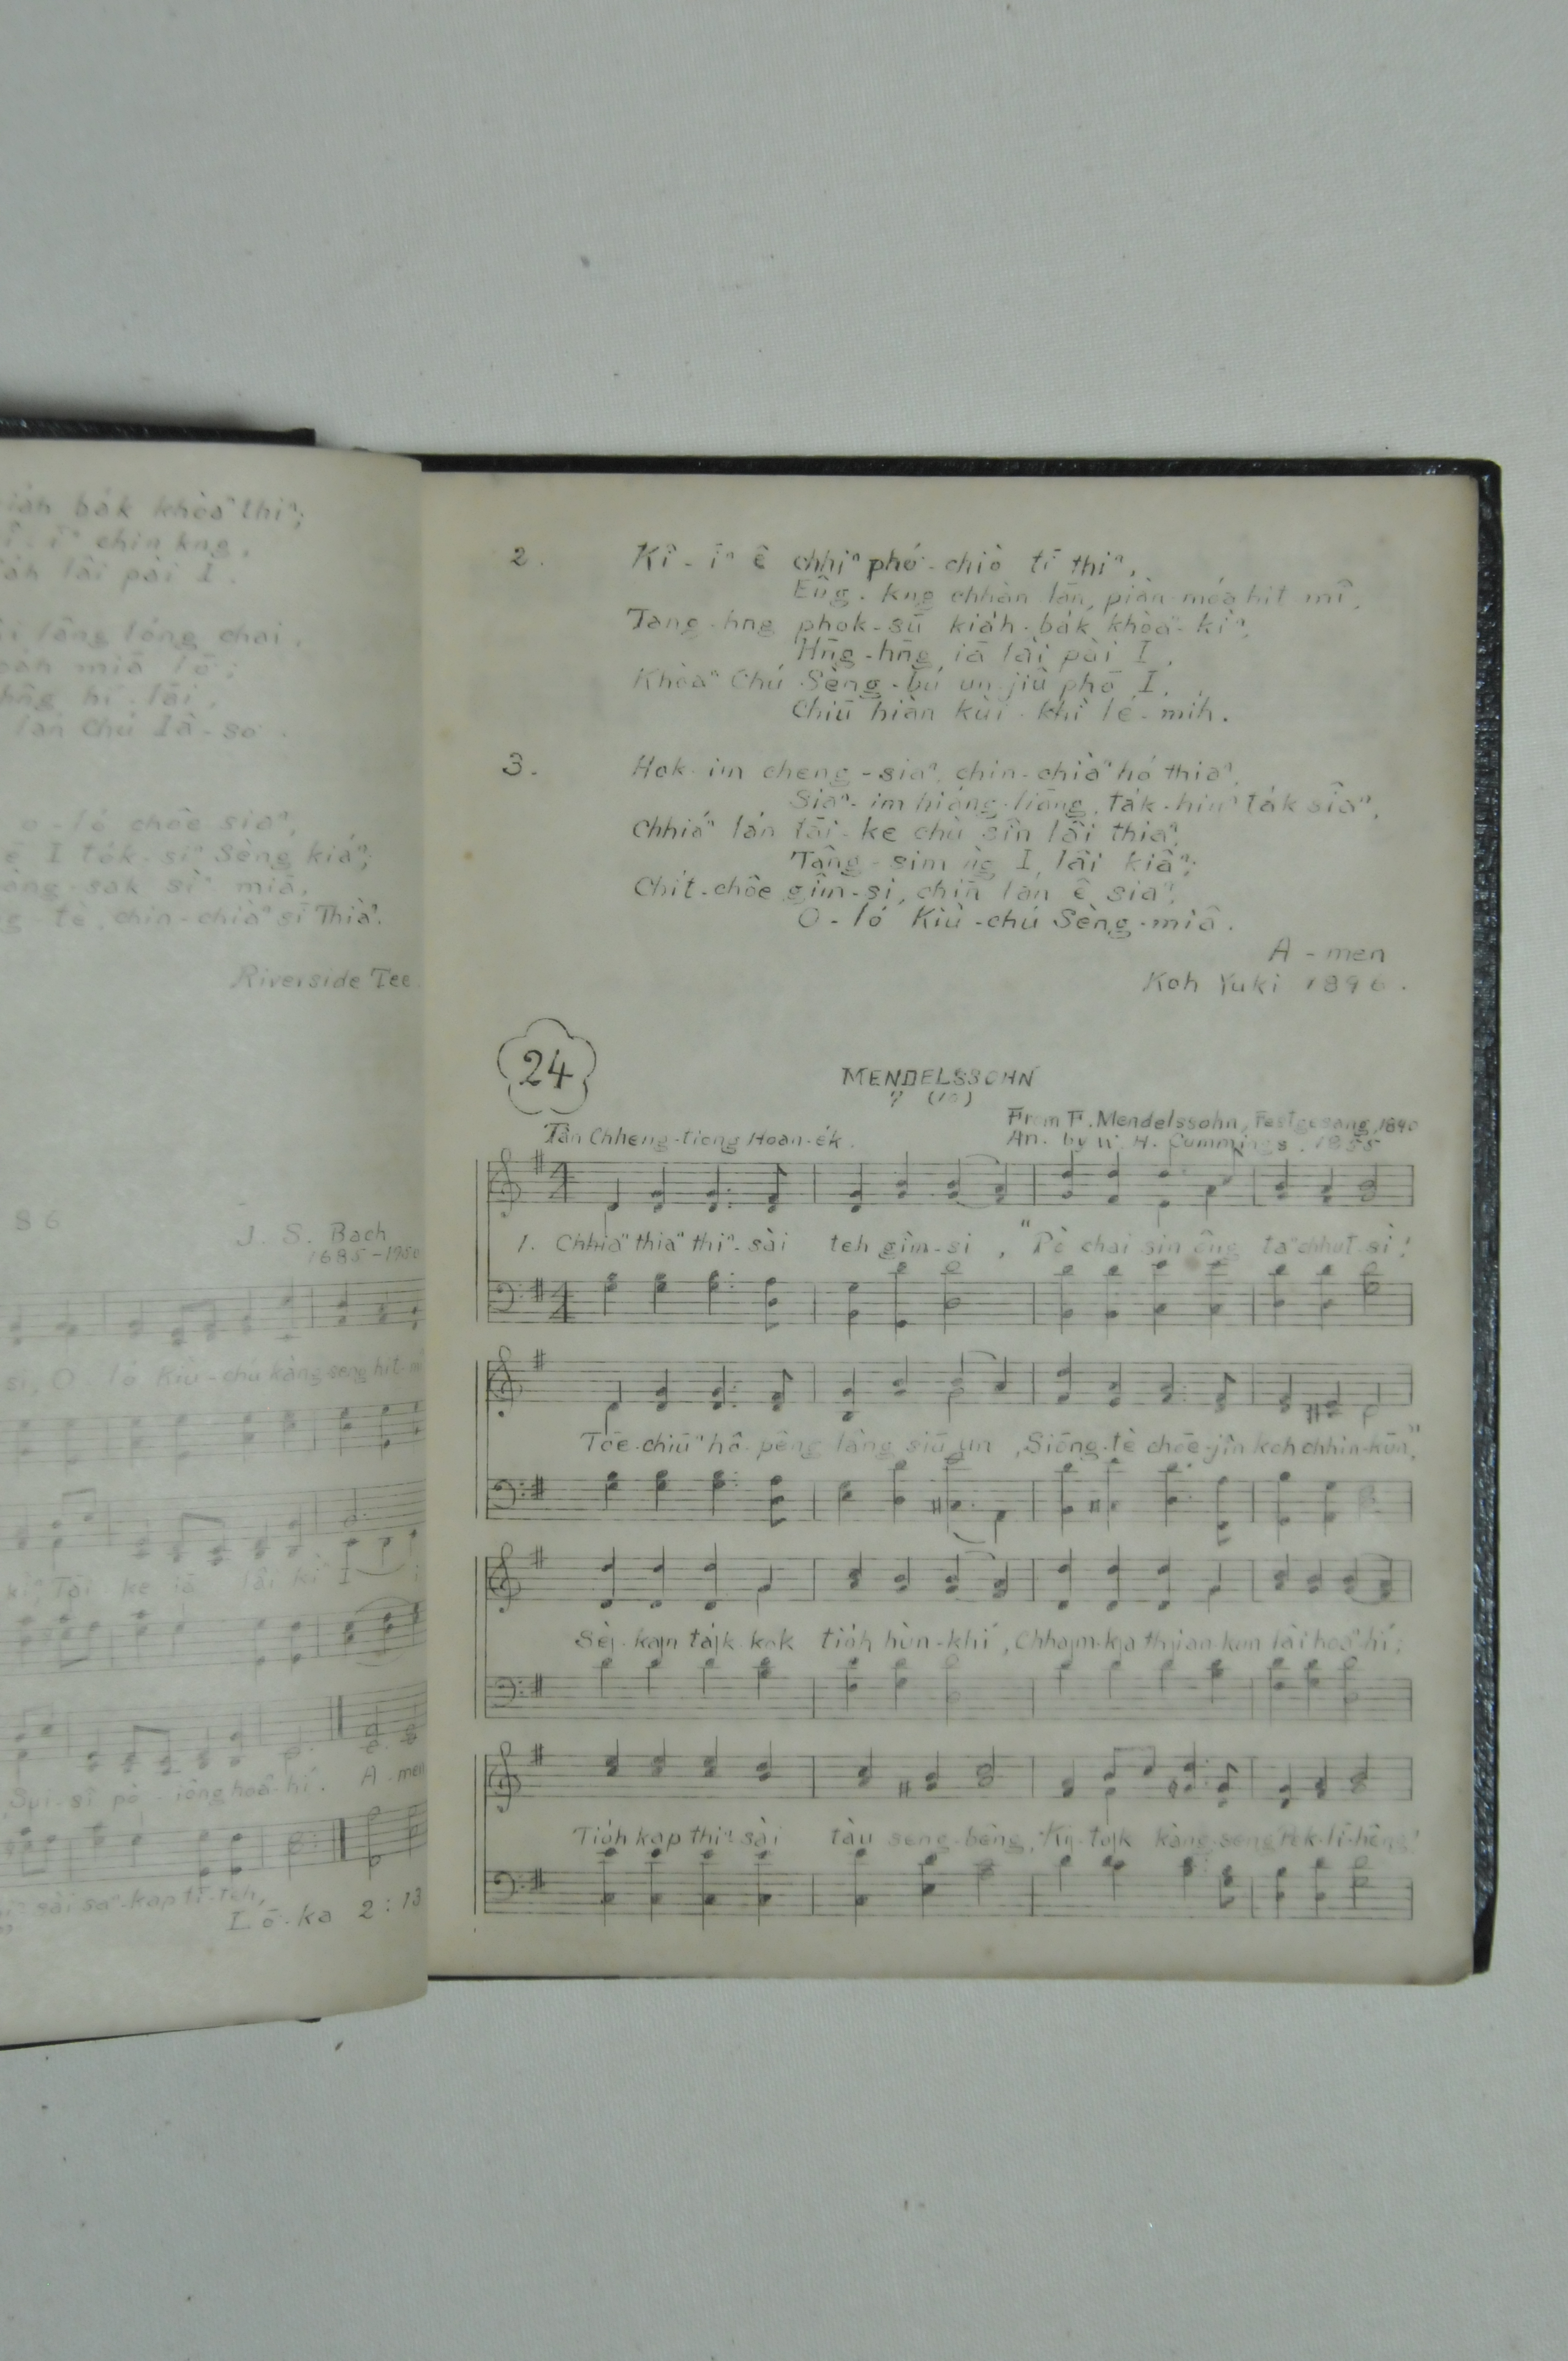 bák khòaⁿ thiⁿ;
chin kng,
lâi pài I.
lâng lóng chai,
miā lō;
hn̄g hi-lāi,
lán Chú Iâ-so.
o-ló chôe siaⁿ,
ê I to̍k-siⁿ Sèng kiáⁿ;
sì miā,
tè, chin-chiàⁿ sī Thiàⁿ.
Riverside Tee.
86
J. S. Bach
1685-1750
si, O ló Kiù-chú kàng-seng hit-mî
Tāi ke iā lâi kì I
Sui-sî pò-iông hoâⁿ-hí. A-men
sài saⁿ-kap tī-teh,
Lō-ka 2:13
2. Kî-īⁿ ê chhiⁿ phó-chiò tī thiⁿ,
Eûg-kng chhàn-lān, piàn-móa hit mî,
Tang-hng phok-sū kia̍h-ba̍k khòaⁿ-kìⁿ,
Hn̄g-hn̄g iā lâi pài I,
Khòaⁿ Chú Sèng-bú un-jiû phō I,
Chiū hiàn kùi-khì lé-mi̍h.
3. Hok-im cheng-siaⁿ, chin-chiàⁿ hó thiaⁿ,
Siaⁿ-im hióng-liāng, ta̍k-hiuⁿ ta̍k siâⁿ,
Chhiáⁿ lán tāi-ke chù sîn lâi thiaⁿ,
Tâng-sim ǹg I, lâi kiâⁿ;
Chi̍t-chôe gîm-si, chiⁿ lán ê siaⁿ,
O-ló Kiù-chú Sèng-miâ.
A-men
Koh Yuki 1896.
24
MENDELSSOHN
From F. Mendelssohn, Festgesang, 1840
Tân Chheng-tiong Hoan-e̍k.
Arr. by W. H. Cummings, 1855
1. Chhiáⁿ thiaⁿ thiⁿ-sài teh gîm-si, "Pò chai sin ông taⁿ chhut-sì!
Tōe-chiūⁿ hô-pêng lâng siū un, Siōng-tè chōe-jîn koh chhin-kūn",
Sè-kan ta̍k kok tio̍h hùn-khí, Chham-ka thian-kun lâi hoaⁿ-hí;
Tio̍h kap thiⁿ-sài tàu seng-bêng, "Ki-tok kàng-seng Pek-lī-hêng".